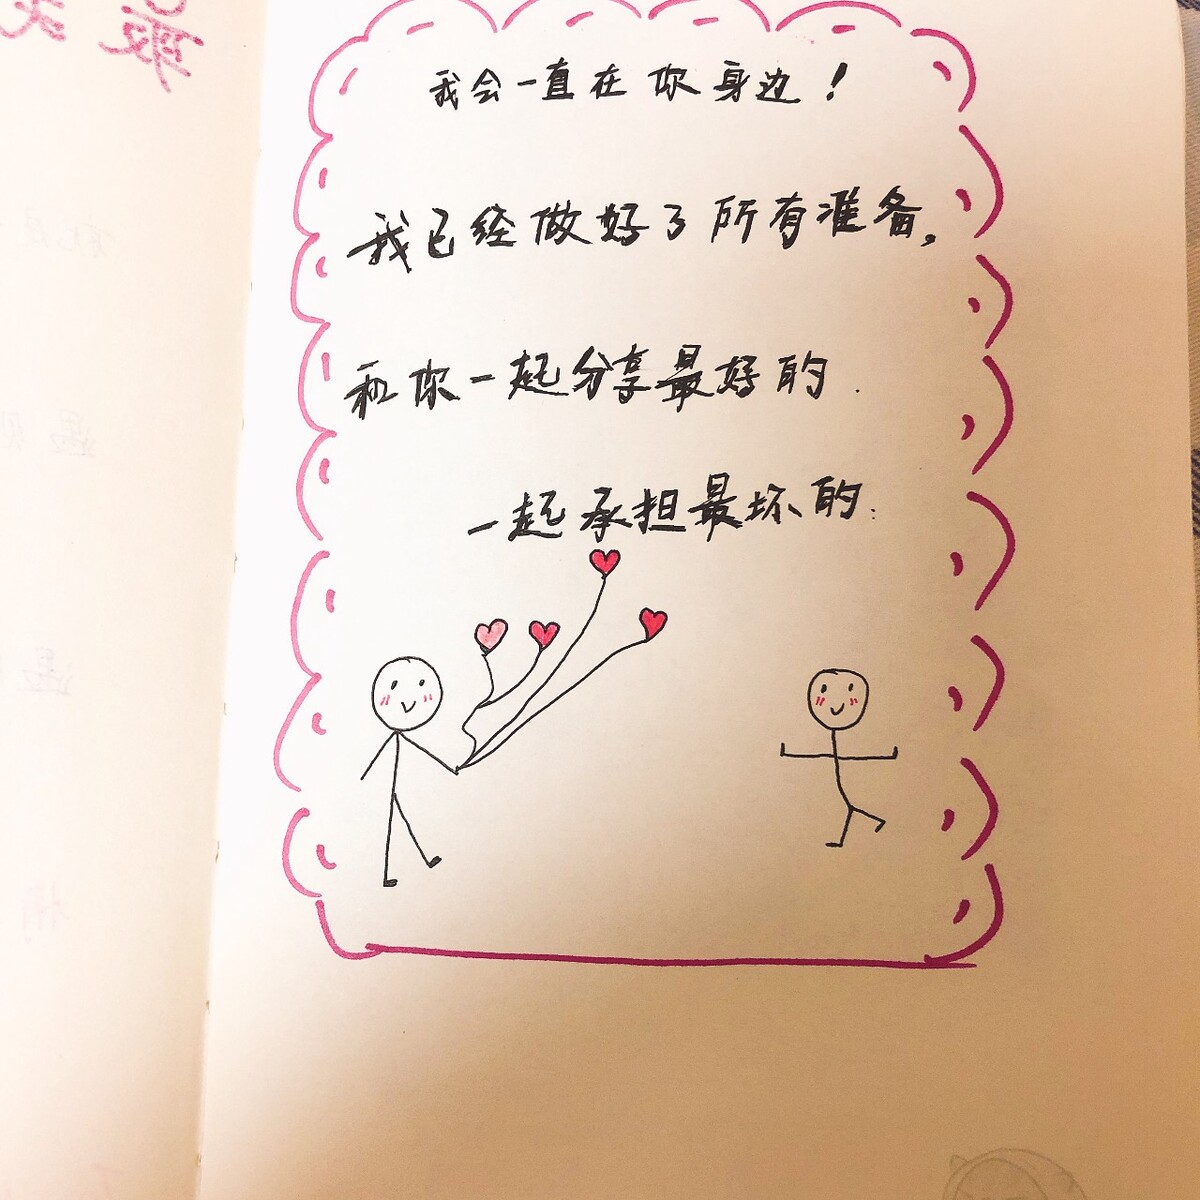 我会一直在你身边！
我已经做好了所有准备,
和你一起分享最好的.
一起承担最坏的.